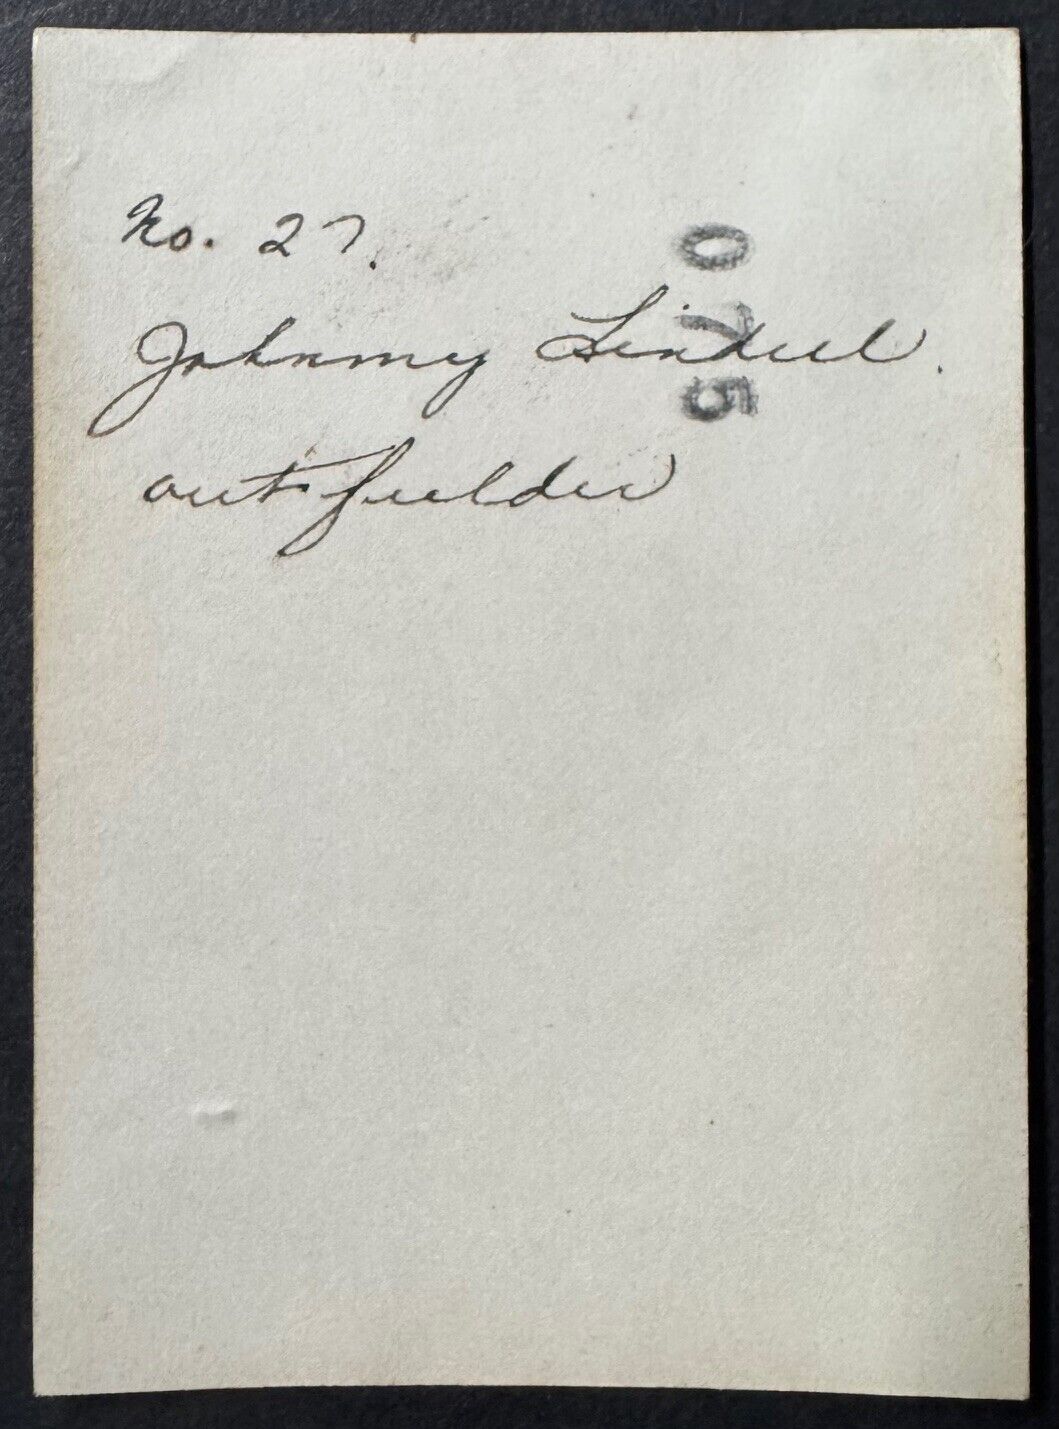 No. 27.
Johnny Lindell.
outfielder
570